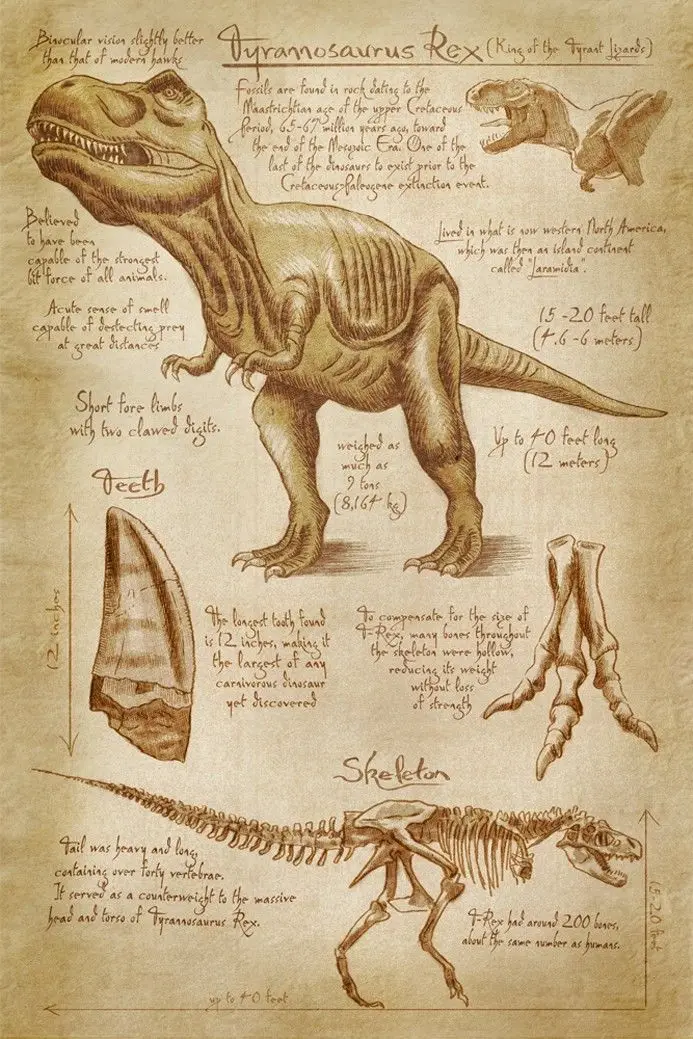 Binocular vision slightly better
than that of modern hawks
Tyrannosaurus Rex (King of the Tyrant Lizards)
Fossils are found in rock dating to the
Maastrichtian age of the upper Cretaceous
Period, 65-67 million years ago, toward
the end of the Mesozoic Era. One of the
last of the dinosaurs to exist prior to the
Cretaceous-Paleogene extinction event.
Believed
to have been
capable of the strongest
bit force of all animals.
Lived in what is now western North America,
which was then an island continent
called "Laramidia".
Acute sense of smell
capable of destecting prey
at great distances
15 -20 feet tall
(4.6 -6 meters)
Short fore limbs
with two clawed digits.
weighed as
much as
9 tons
(8,164 kg)
Up to 40 feet long
(12 meters)
Teeth
12 inches
The longest tooth found
is 12 inches, making it
the largest of any
carnivorous dinosaur
yet discovered
To compensate for the size of
T-Rex, many bones throughout
the skeleton were hollow,
reducing its weight
without loss
of strength
Skeleton
Tail was heavy and long,
containing over forty vertebrae.
It served as a counterweight to the massive
head and torso of Tyrannosaurus Rex.
T-Rex had around 200 bones,
about the same number as humans.
15-20 feet
up to 40 feet